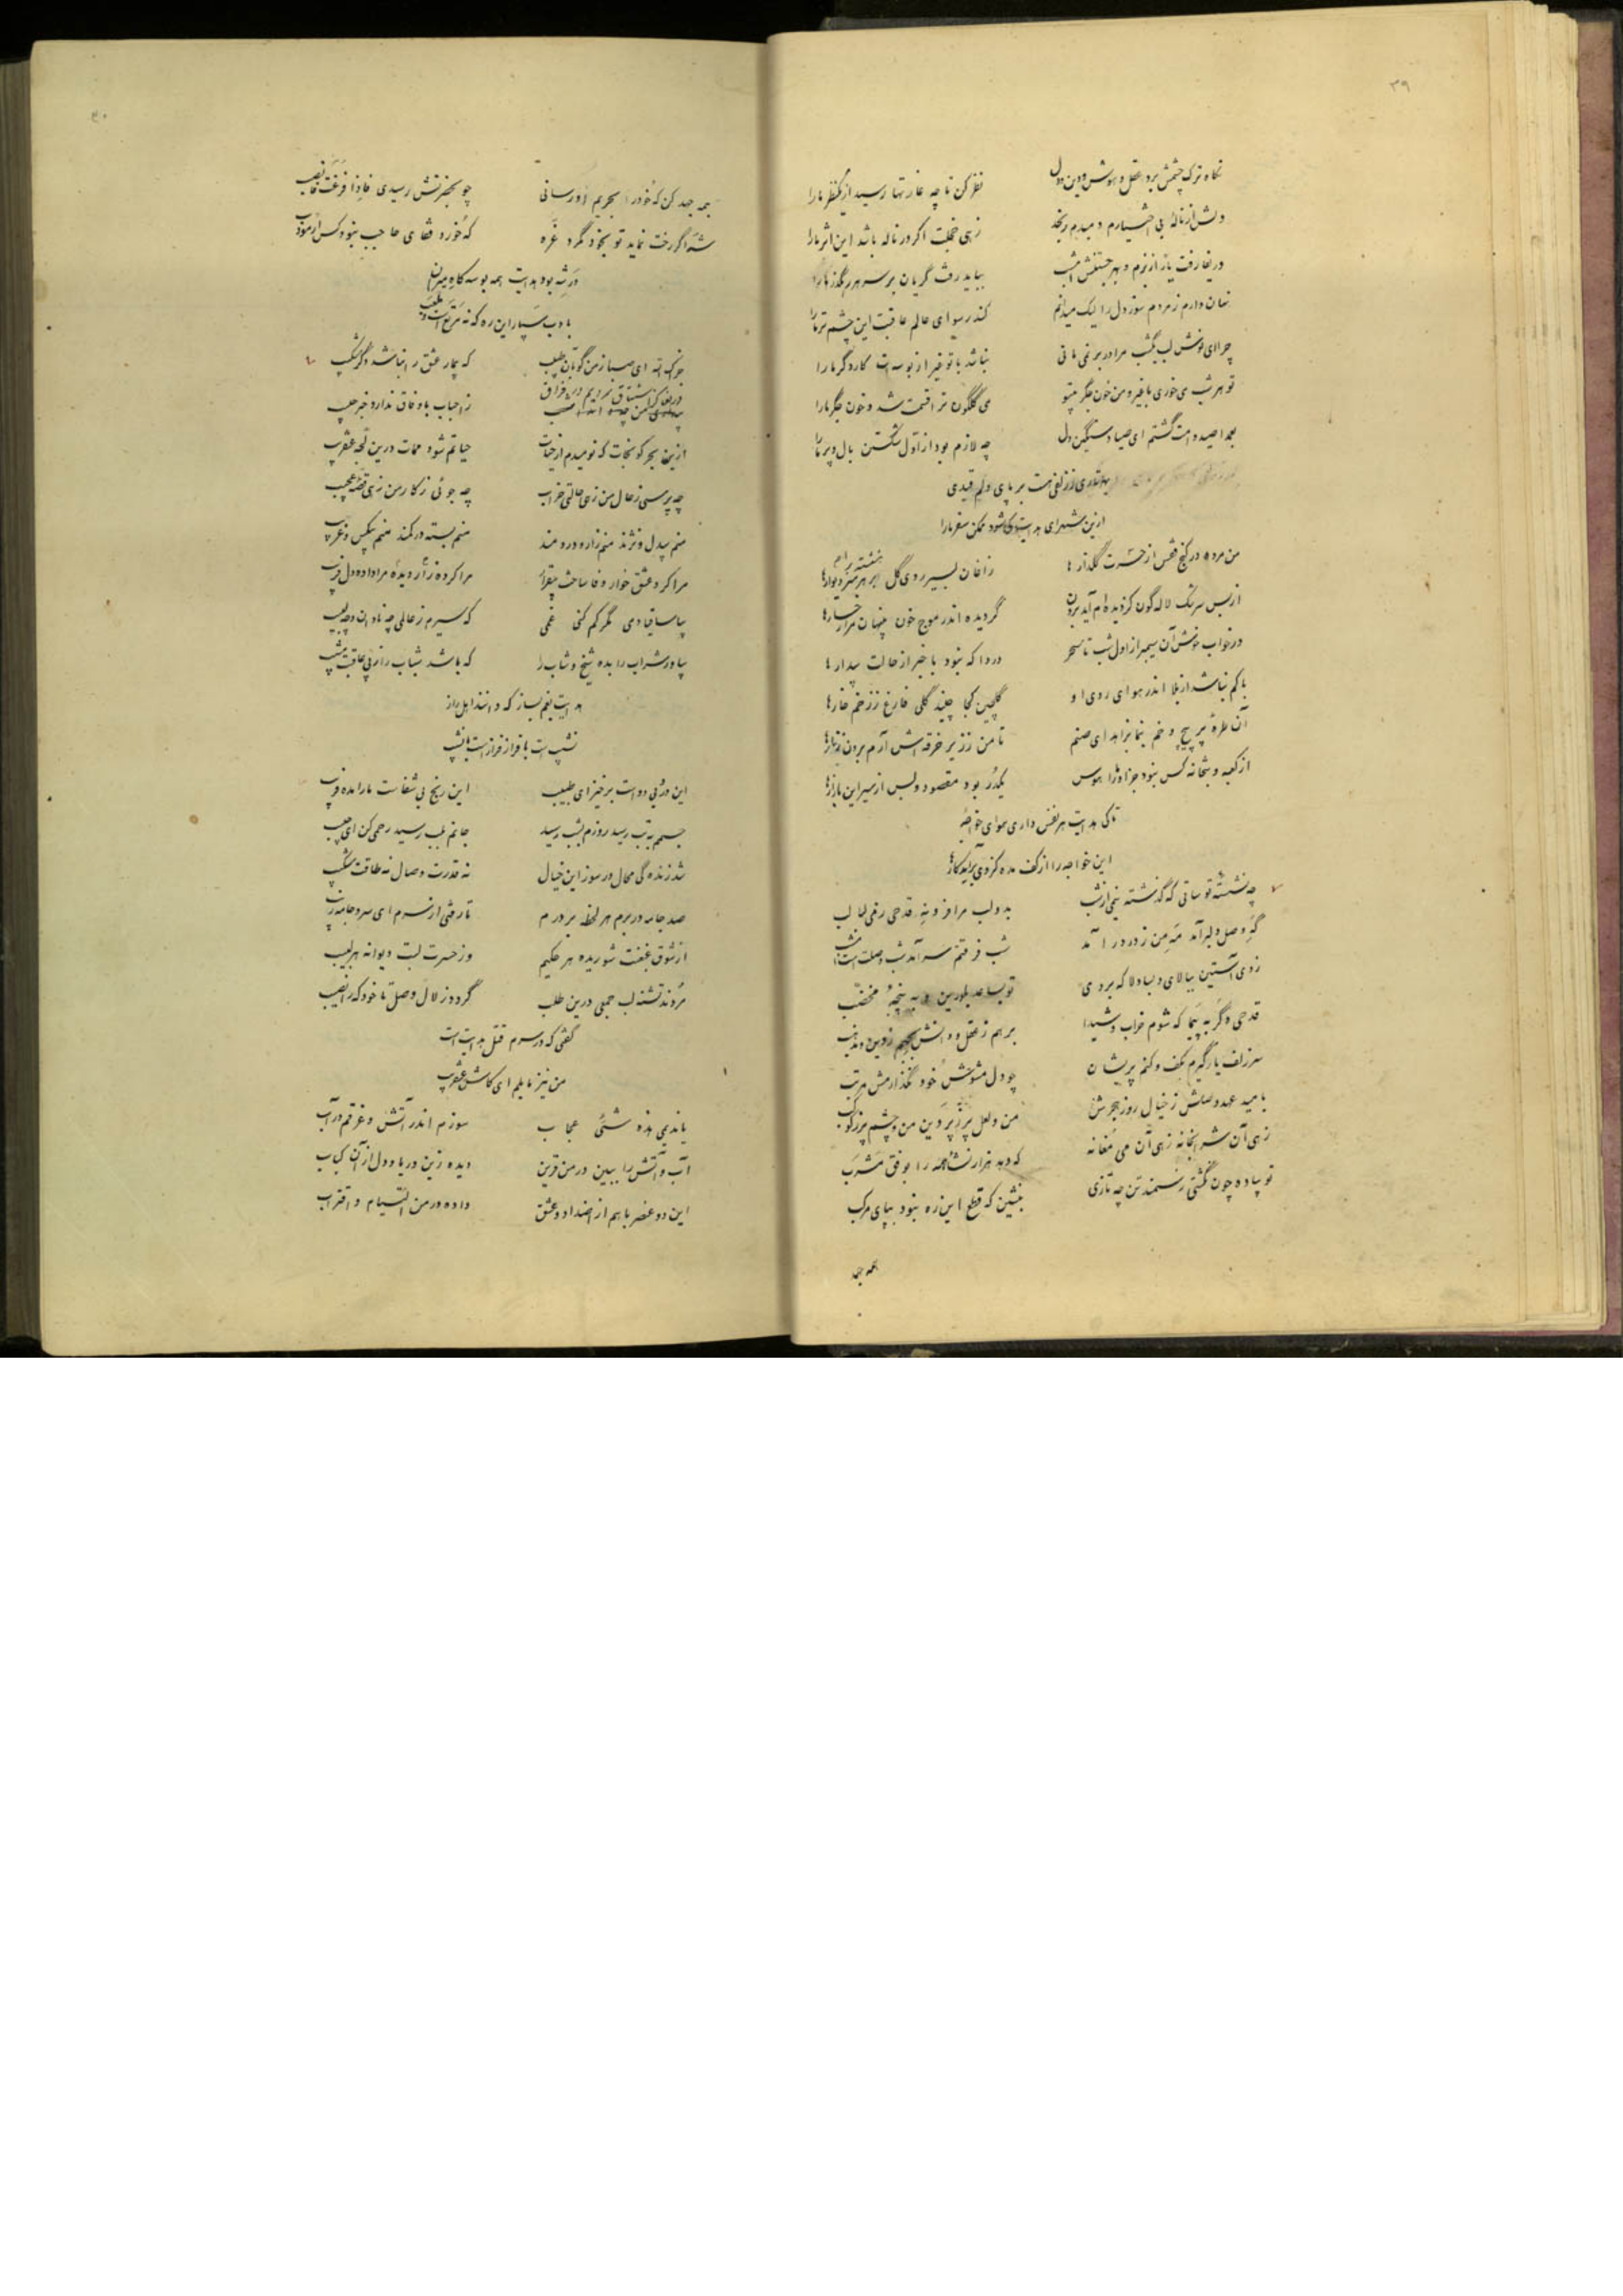 ۳۹
نگاه ترک چشمش برد عقل و هوش و دین و دل نظر کن تا چه غارتها رسید از یک نظر ما را
دلش از نالهٔ بی اختیارم دمبدم رنجد زهی خجلت اگر در ناله باشد این اثر ما را
دریغا رفت یار از بزم و بهر جستنش امشب بباید رفت گریان بر سر هر رهگذر ما را
نهان دارم ز مردم سوز دل را لیک میدانم کند رسوای عالم عاقبت این چشم تر ما را
چرا ای نوش لب یکشب مرا در بر نمی مانی نباشد با تو غیر از بوسه ات کار دگر ما را
تو هر شب می خوری با غیر و من خون جگر بیتو می گلگون ترا قسمت شد و خون جگر ما را
بعمدا صید دامت گشتم ای صیاد سنگین دل چه لازم بود از اول شکستن بال و پر ما را
تاری ز زلفی هست بر پای دلم قیدی
ازین شهر ای هدایت کی شود ممکن سفر ما را
من مرده در کنج قفس از حسرت گلزارها زاغان بسیر روی گل بر هر سر دیوارها
از بس سرشک لاله گون کز دیده ام آید برون گردیده اندر موج خون پنهان مرا رخسارها
در خواب خوش آن سیمبر از اول شب تا سحر دردا که نبود با خبر از حالت بیدارها
باکم نباشد از بلا اندر هوای روی او گلچین کجا چیند گلی فارغ ز زخم خارها
آن طرهٔ پر پیچ و خم بنما بزاهد ای صنم تا من ز زیر خرقه اش آرم برون زنارها
از کعبه و بتخانه کس نبود جز او را هوس یکدر بود مقصود و بس از سیر این بازارها
تا کی هدایت هر نفس داری هوای خواجه
این خواجه را از کف مده کز وی برآید کارها
چه نشستهٔ تو ساقی که گذشته نیمی از شب بدو لب مرا فزون نه قدحی رغی لبالب
گه وصل دلبر آمد مه من ز در در آمد شب فرقتم سر آمد شب وصلت است امشب
زدی آستین ببالای و بسا دلا که بردی تو بساعد بلورین و به پنجهٔ مخضب
قدحی دگر به پیما که شوم خراب و شیدا برهم ز عقل و دانش بجهم ز دین و مذهب
سر زلف یار گیرم بکف و کنم پریشان چو دل مشوش خود نگذارمش مرتب
بامید عهد وصلش ز خیال روز هجرش من و لعل پر ز پروین من و چشم پر ز کوکب
زهی آن شرابخانه زهی آن می مغانه که دهد هزار نشاه همه را بوفق مشرب
تو پیاده چون نگشتی ز سمند تن چه تازی بنشین که قطع این ره نبود بپای مرکب
همه جهد
۴۰
همه جهد کن که خود را بحریم او رسانی چو بحضرتش رسیدی فاذا فرغت فانصب
شه اگر رخت نماید تو بخود مگرد غره که خورد قفای حاجب نبود کس ار مؤدب
در شه بود هدایت همه بوسه گاه میران
با ادب سپار این ره که نه
خرک الله ای صبا ز من گو بآن طبیب که بیمار عشق را نباشد دگر شکیب
ز احباب با وفاق ندارد خبر حبیب
ازین بحر کو نجات که نومیدم از حیات حیاتم شود ممات درین لجه عنقریب
چه پرسی ز حال من زهی حالتی خراب چه جوئی ز کار من زهی قصهٔ عجیب
منم بیدل و نژند منم زار و دردمند منم بسته در کمند منم بیکس و غریب
مرا کرد عشق خوار وفا ساخت بیقرار مرا کرده زار دیده مرا داده دل فریب
بیا ساقیا دمی مگر کم کنی غمی که سیرم ز عالمی چه نادان و چه لبیب
بیاور شراب را بده شیخ و شاب را که باشد شباب را ز پی عاقبت مشیب
هدایت بغم بساز که دانند اهل راز
نشیب است با فراز فراز است با نشیب
این درد بی دواست برخیز ای طبیب این رنج بی شفاست ما را مده فریب
جسمم به تب رسید روزم بشب رسید جانم بلب رسید رحمی کن ای حبیب
شد زندگی محال در سوز این خیال نه قدرت وصال نه طاقت شکیب
صد جامه در برم هر لحظه بر درم تا رفتی از سرم ای سرو جامه زیب
از شوق غبغبت شوریده هر حکیم وز حسرت لبت دیوانه هر لبیب
مردند تشنه لب جمعی درین طلب گردد زلال وصل تا خود که را نصیب
گفتی که در سرم قتل هدایت است
من نیز مایلم ای کاش عنقریب
یا ندیمی هذه شیئی عجاب سوزم اندر آتش و غرقم در آب
آب و آتش را ببین در من قرین دیده زین دریا و دل از آن کباب
این دو عنصر با هم از اضداد و عشق داده در من التیام و اقتراب